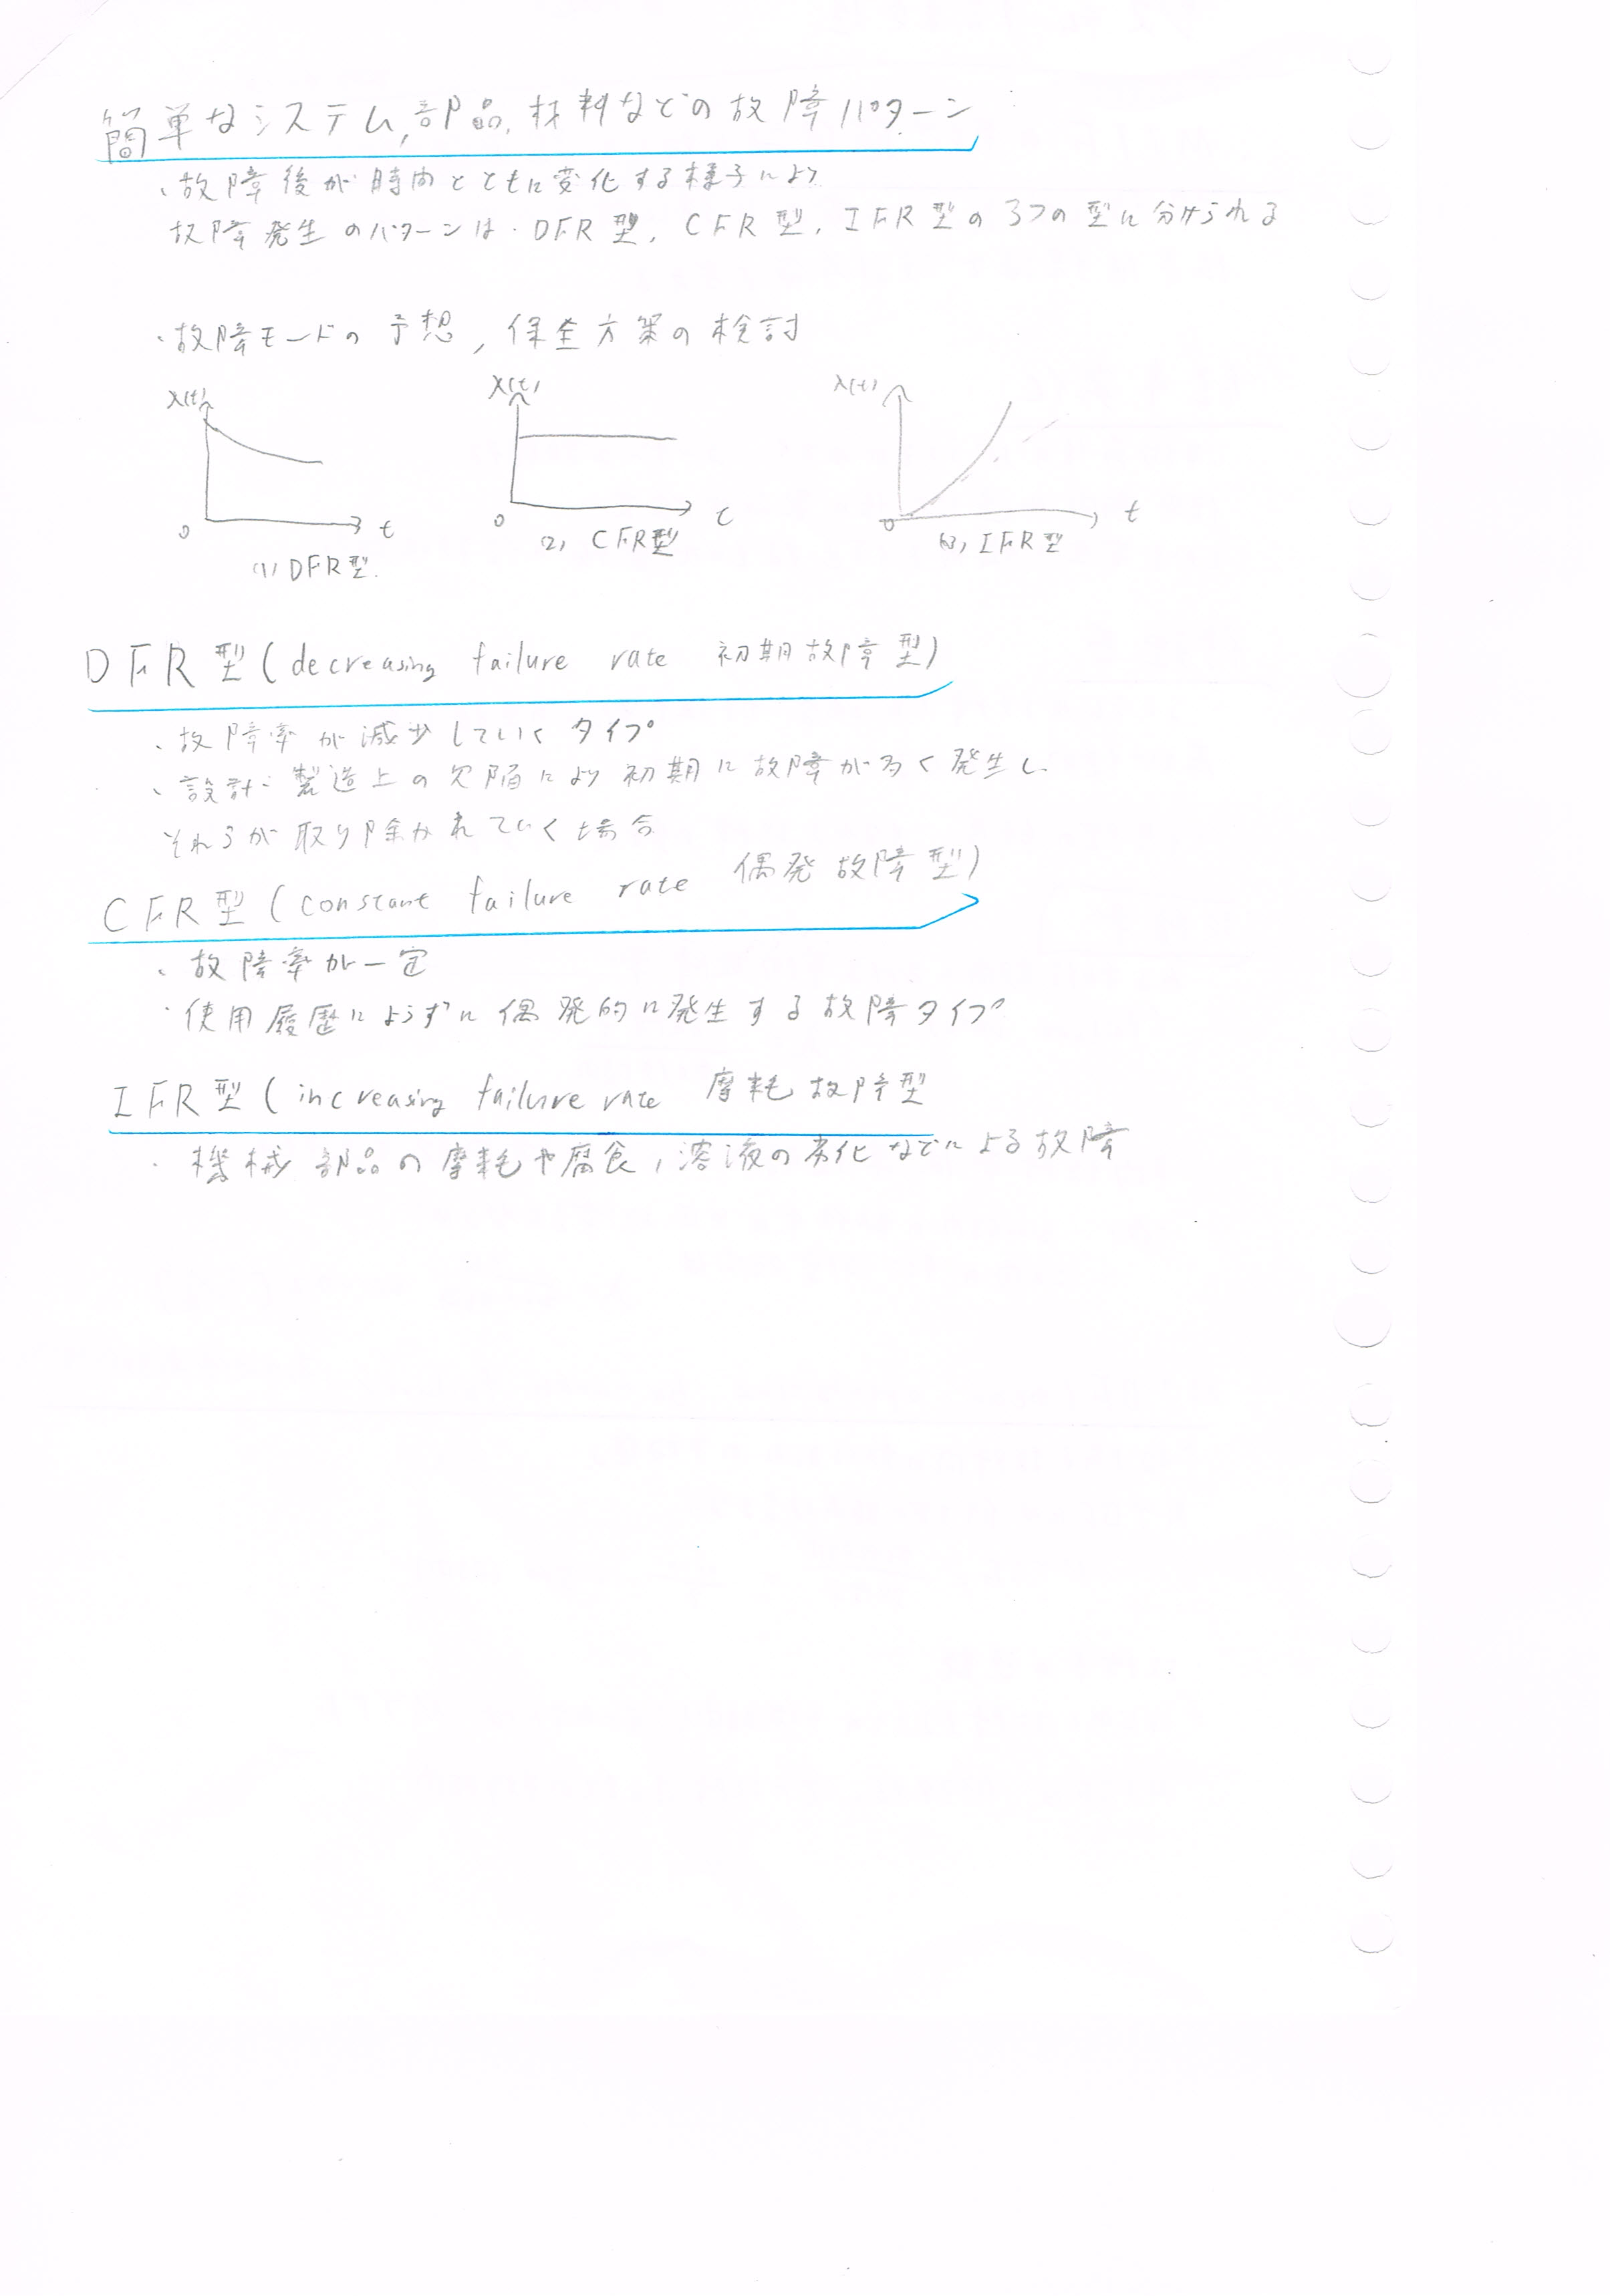 簡単なシステム,部品,材料などの故障パターン
・故障後が時間とともに変化する様子により
故障発生のパターンは・DFR型,CFR型,IFR型の3つの型に分けられる
・故障モードの予想,保全方策の検討
λ(t) λ(t) λ(t)
0 t 0 t 0 t
(1) DFR型 (2) CFR型 (3) IFR型
DFR型(decreasing failure rate 初期故障型)
・故障率が減少していくタイプ
・設計・製造上の欠陥により初期に故障が多く発生し
それらが取り除かれていく場合
CFR型(constant failure rate 偶発故障型)
・故障率が一定
・使用履歴にようずに偶発的に発生する故障タイプ
IFR型(increasing failure rate 摩耗故障型
・機械部品の摩耗や腐食,溶液の劣化などによる故障